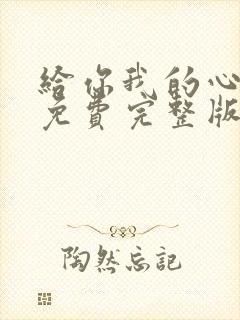 給你我的心
免費完整版
陶然忘記